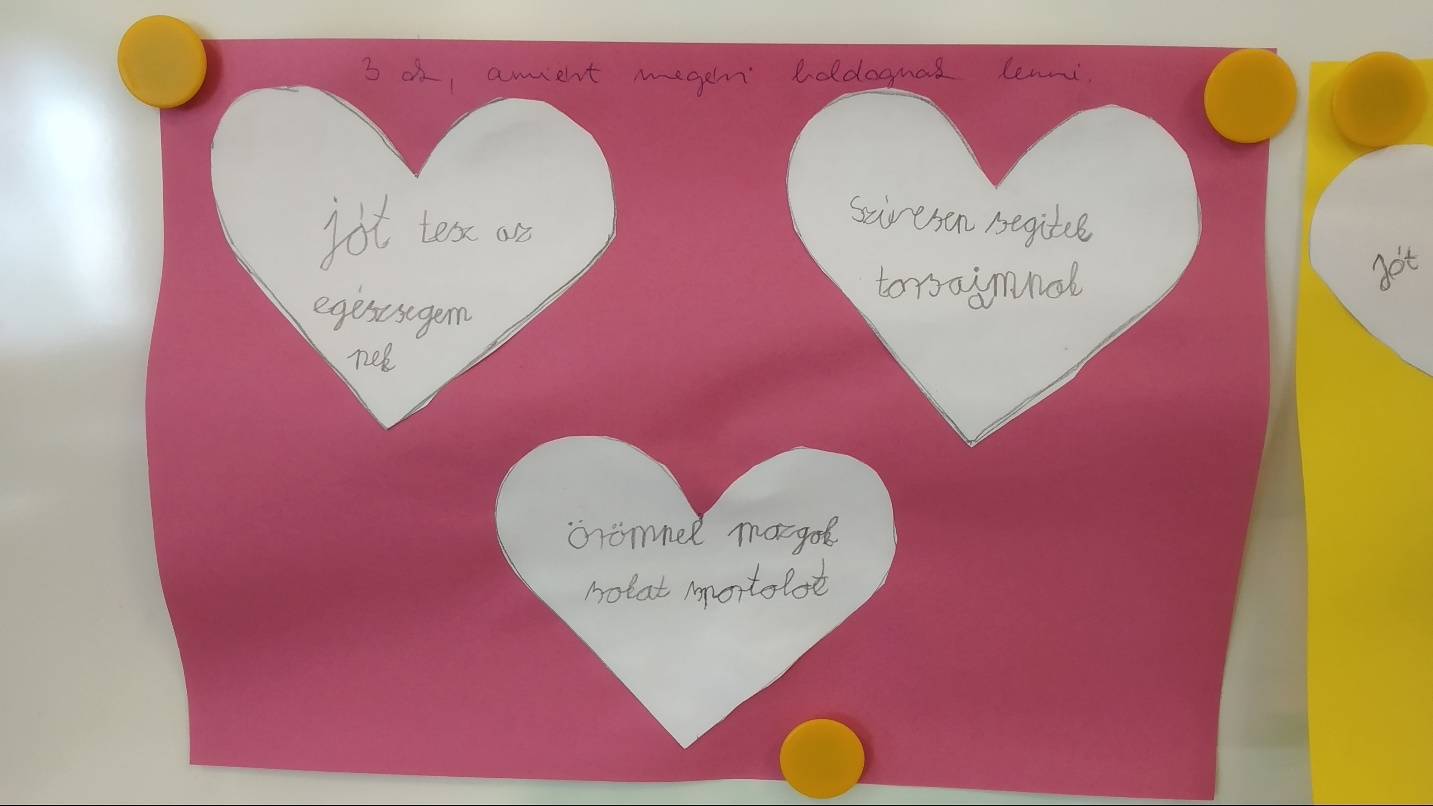 3 ok, amiért megéri boldognak lenni.
jót tesz az
egészsegem
nek
Szívesen segitek
torsaimnak
Örömnel mozgok
sokat sportolok
Jót